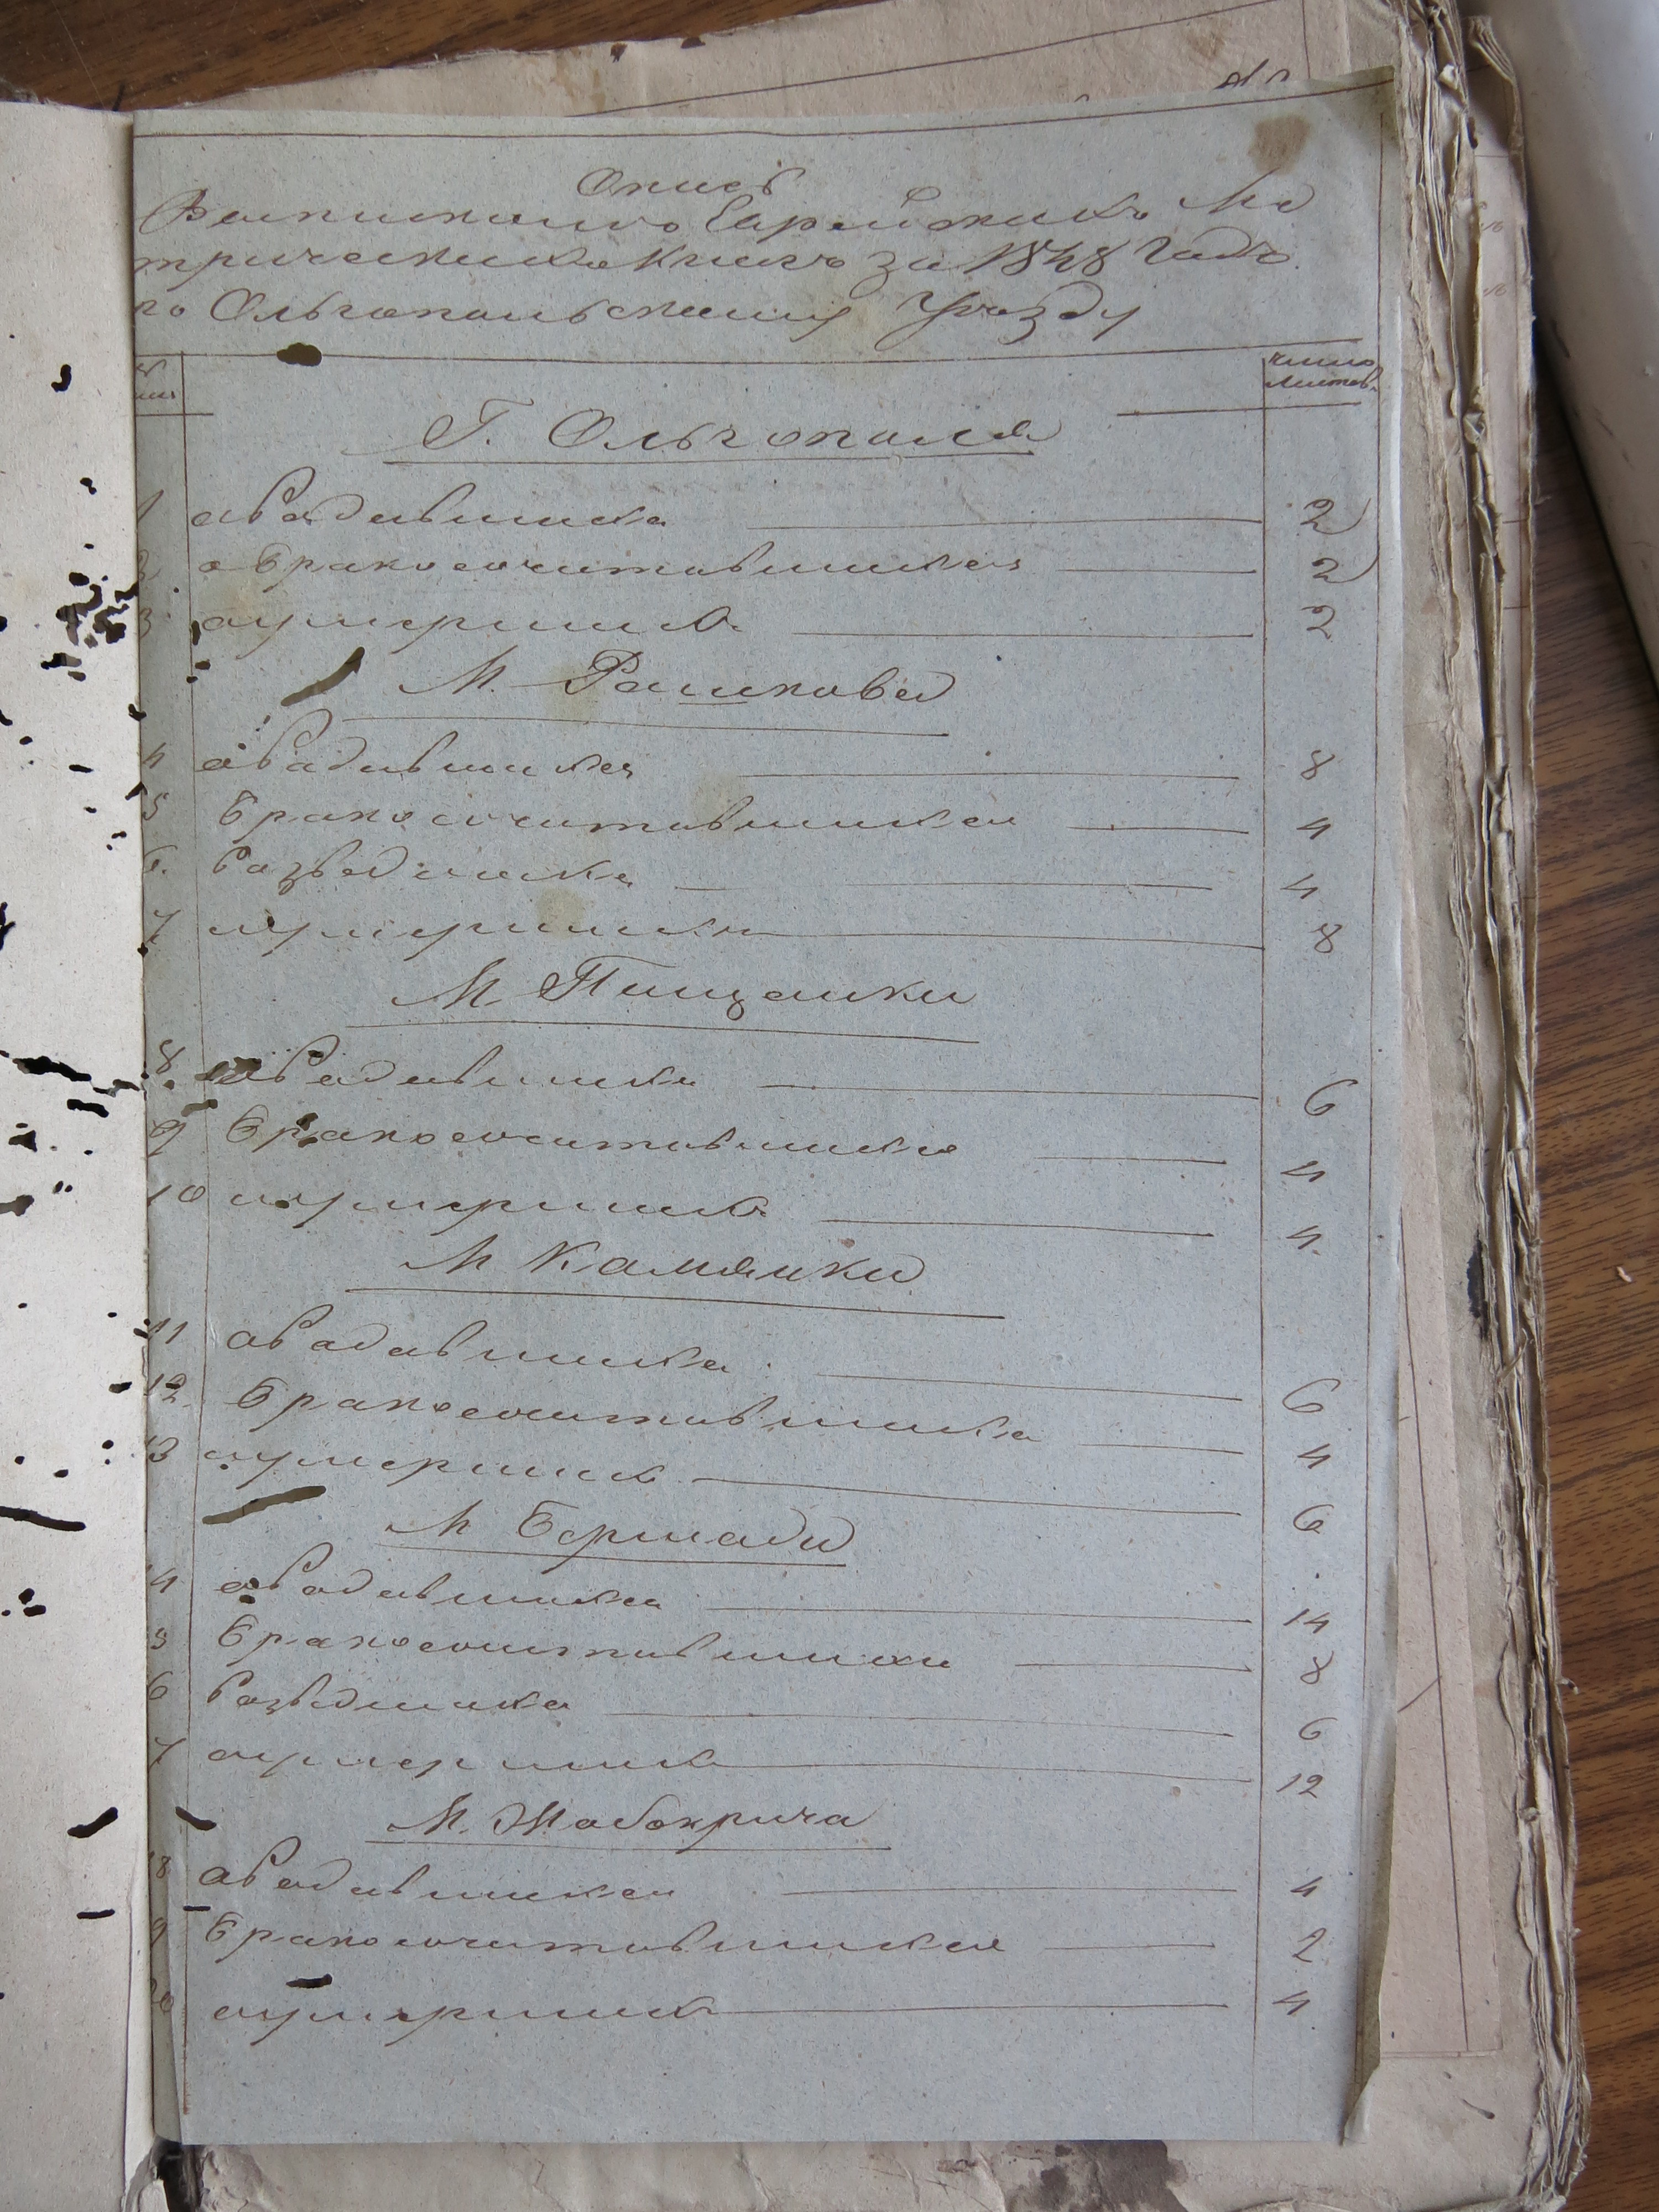 Опись
Еврейскихъ Ме
трическихъ Книгъ за 1848 Годъ
по Ольгопольскому Уезду
число
листов.
Г. Ольгополя
1 о Родившихся 2
2 о Бракосочитавшихся 2
3 о умерших 2
М. Рашкова
4 о Родившихся 8
5 Бракосочитавшихся 4
6. Разведшихся 4
7 о умерших 8
М. Пищанки
8 о Родившихся 6
9 Бракосочитавшихся 4
10 о умерших 4.
М Камянки
11 о Родившихся 6
12. Бракосочитавшихся 4
13 о умерших 6
М Бершади
14 о Родившихся 14
5 Бракосочитавшихся 8
6 Разведшихся 6
7 о умерших 12
М. Жабокрича
18 о Родившихся 4
9 Бракосочитавшихся 2
20 о умерших 4